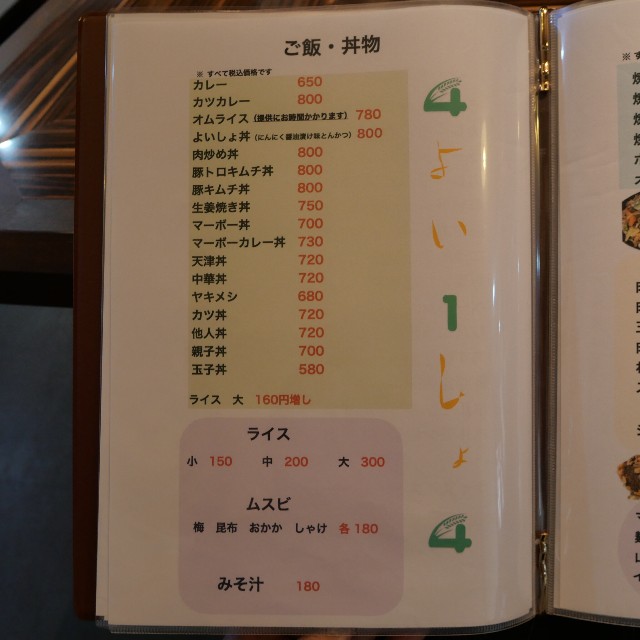 ご飯・丼物
※ すべて税込価格です
カレー 650
カツカレー 800
オムライス（提供にお時間かかります） 780
よいしょ丼（にんにく醤油漬け味とんかつ） 800
肉炒め丼 800
豚トロキムチ丼 800
豚キムチ丼 800
生姜焼き丼 750
マーボー丼 700
マーボーカレー丼 730
天津丼 720
中華丼 720
ヤキメシ 680
カツ丼 720
他人丼 720
親子丼 700
玉子丼 580
ライス 大 160円増し
ライス
小 150 中 200 大 300
ムスビ
梅 昆布 おかか しゃけ 各180
みそ汁 180
4
よ
い
1
し
ょ
4